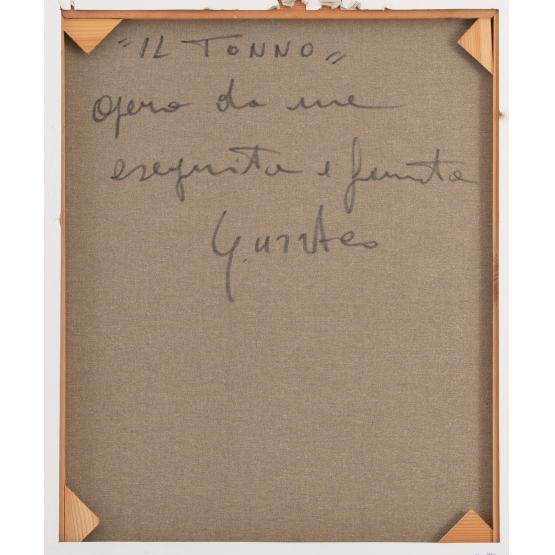 "IL TONNO"
Opera da me
eseguita e firmata